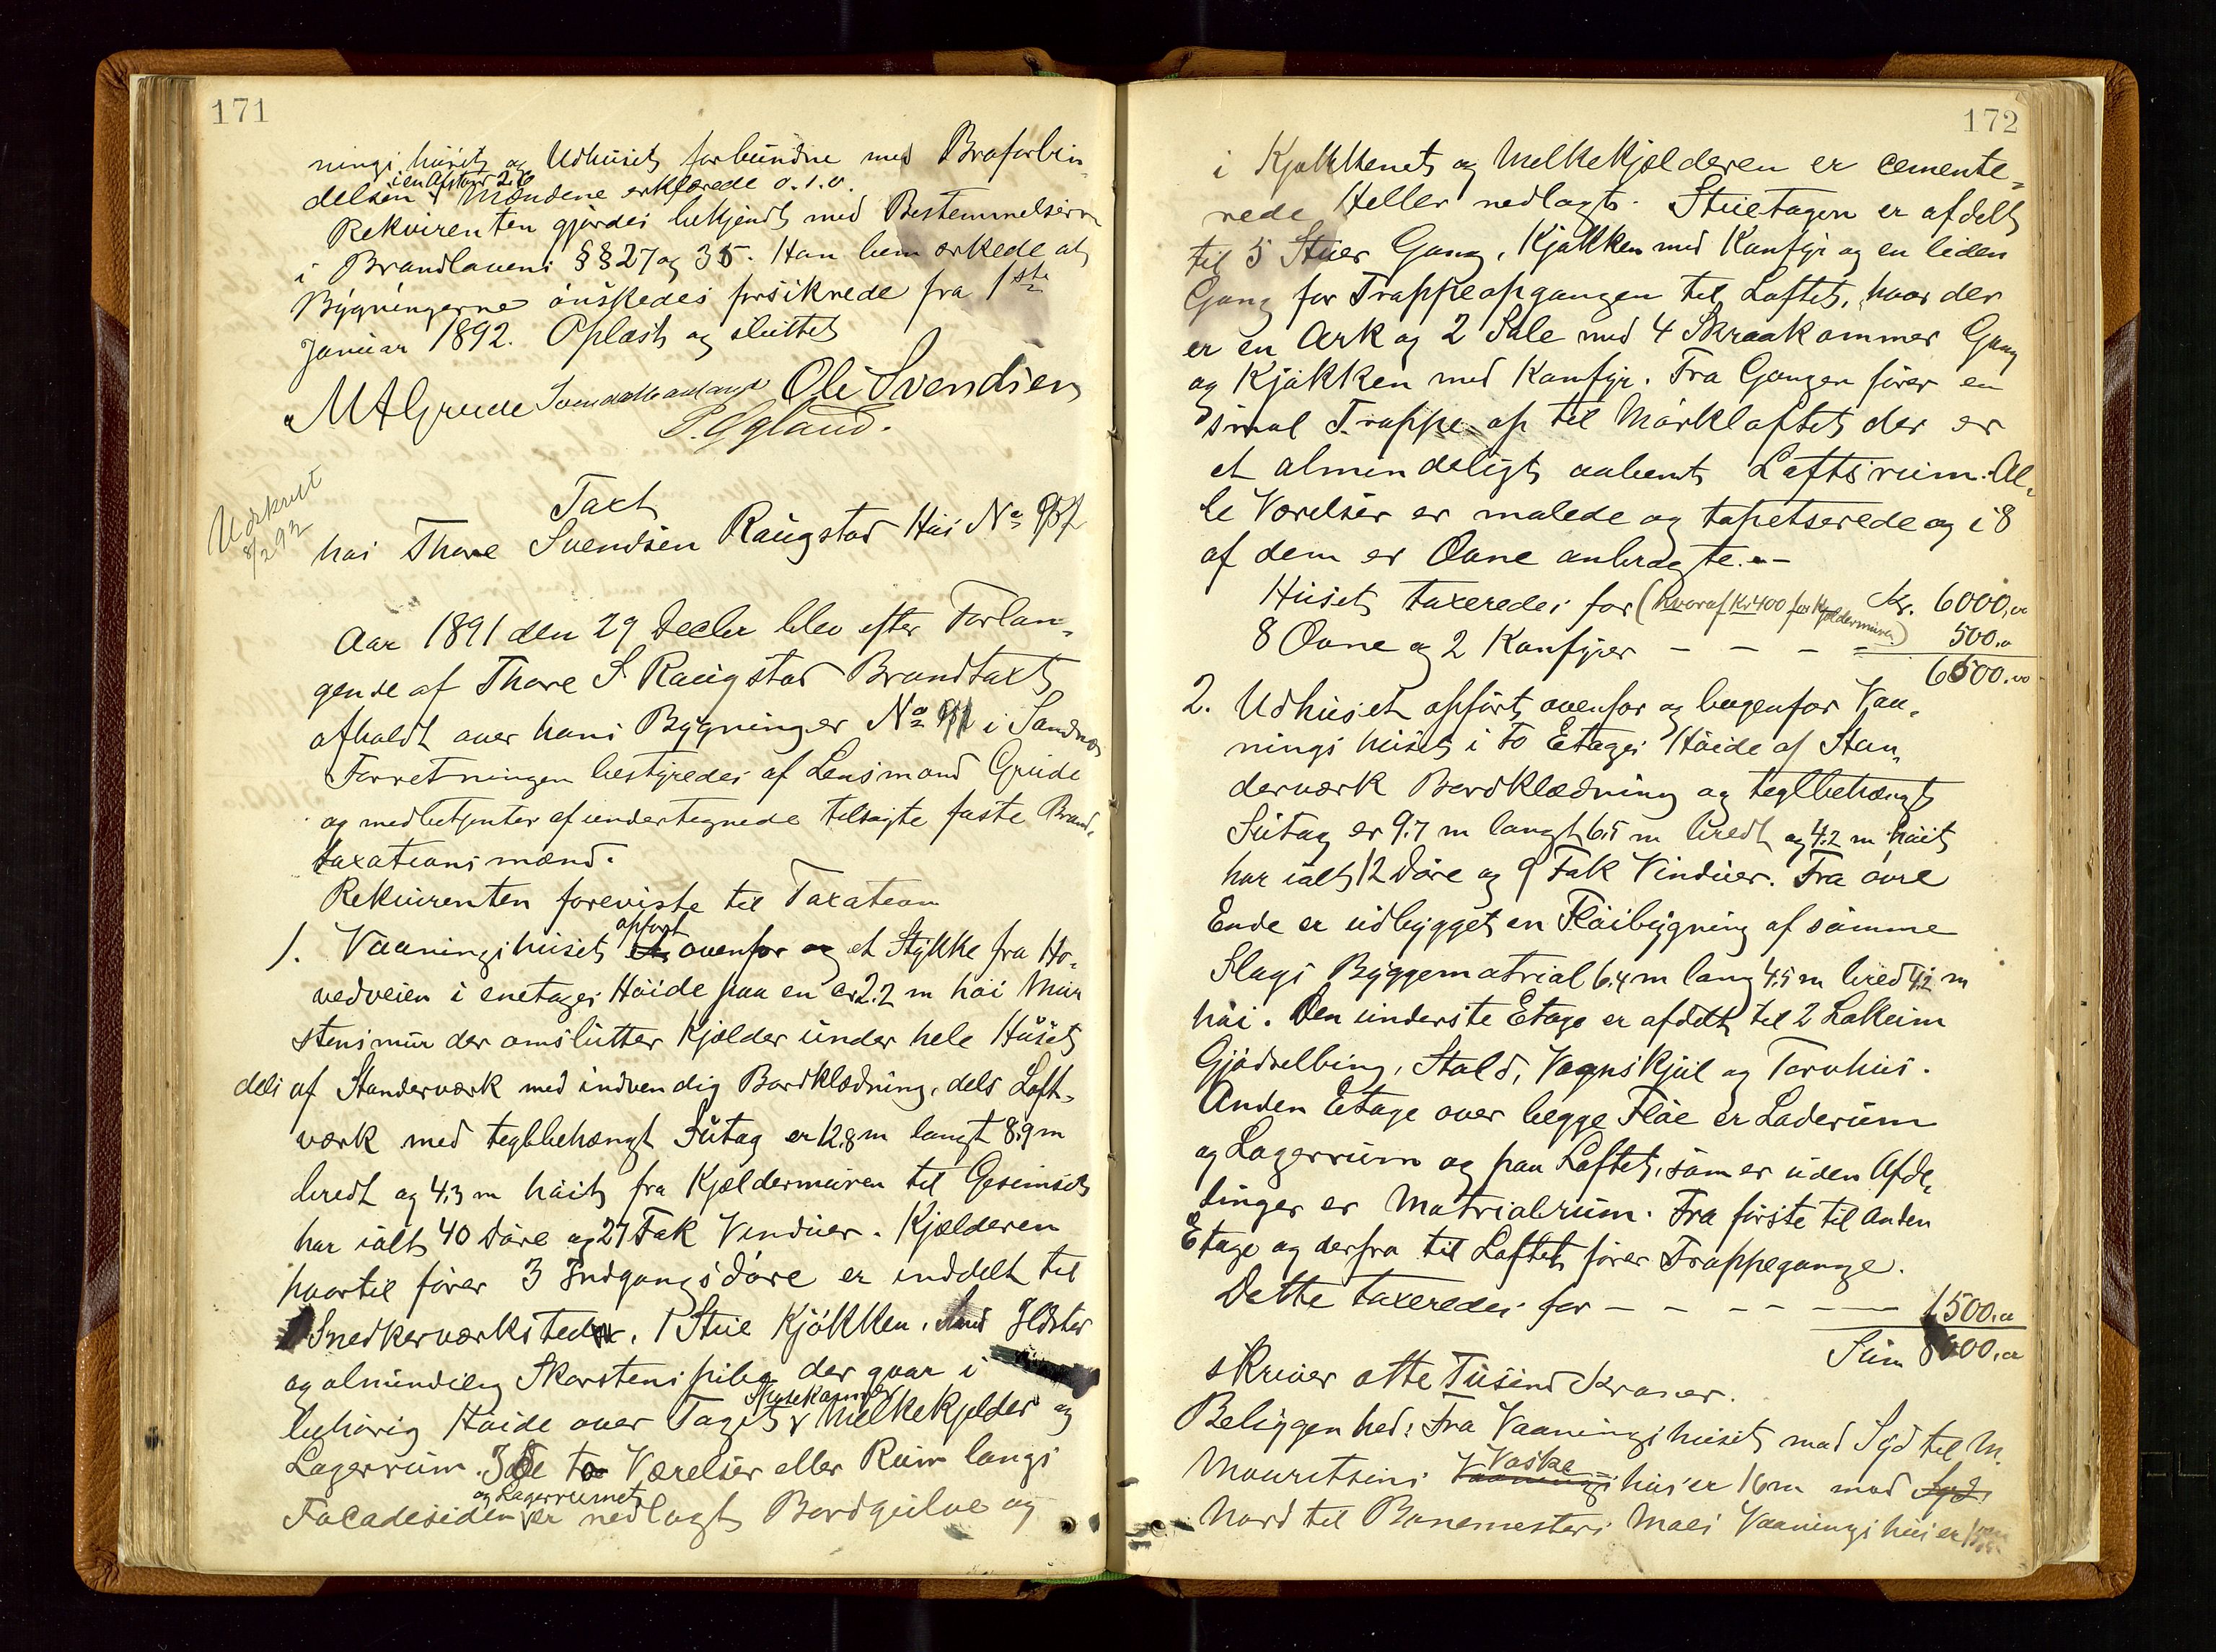 171
ningshuset og Udhuset forbundne med Braforbin-
i en Afstand 2.6
delsen Mændene erklærede o.s.v.
Rekvirenten gjordes bekjendt med Bestemmelserne
i Brandlovens §§ 27 og 35. Han bemærkede at
Bygningerne ønskedes forsikrede fra 1ste
Januar 1892. Oplæst og sluttet
MAGrude Ole Svendsen
P. Egland.
Udskrevet
8/2 92
Taxt
hos Thore Svendsen Raugstad Hus No
Aar 1891 den 29 Decbr blev efter Forlan-
gende af Thore S Raugstad Brandtaxt
afholdt over hans Bygninger No i Sandnæs
Forretningen bestyredes af Lensmand Grude
og medbetjenter af undertegnede tilsagte faste Brand-
taxationsmænd.
Rekvirenten foreviste til Taxation
opført
1. Vaaningshuset ovenfor og et Stykke fra Ho-
vedveien i enetages Høide paa en ca 2.2 m høi Mur
stensmur der omslutter Kjælder under hele Huset
dels af Standerværk med indvendig Bordklædning, dels Loft-
værk med teglbehængt Sutag er 12.8 m langt 8.9 m
bredt og 4.3 m høit fra Kjældermuren til Gesimset
har ialt 40 Døre og 27 Fak Vinduer. Kjælderen
hvortil fører 3 Indgangsdøre er inddelt til
Snedkerværksted, 1 Stue Kjøkken, med Ildsted
og almindelig Skorstenspibe der gaar i
Spisekammer
behørig Høide over Taget Melkekjelder og
Lagerrum. I de to Værelser eller Rum langs
og Lagerrummet
Facadesiden er nedlagt Bordgulve og
172
i Kjøkkenet og Melkekjælderen er cemente-
rede Heller nedlagt. Stuetagen er afdelt
til 5 Stuer Gang, Kjøkken med Komfyr og en liden
Gang for Trappeopgangen til Loftet, hvor der
er en Ark og 2 Sale med 4 Skraakammer Gang
og Kjøkken med Komfyr. Fra Gangen fører en
smal Trappe op til Mørkloftet der er
et almindeligt aabent Loftsrum. Al-
le Værelser er malede og tapetserede og i 8
af dem er Ovne anbragte. -
Huset taxeredes for (hvoraf Kr 400 for Kjældermuren) Kr. 6000,00
8 Ovne og 2 Komfyrer - - - - 500.00
6500.00
2. Udhuset opført ovenfor og bagenfor Vaa-
ningshuset i to Etages Høide af Stan-
derværk Bordklædning og teglbehængt
Sutag er 9.7 m langt 6.5 m bredt og 4.2 m høit
har ialt 12 Døre og 9 Fak Vinduer. Fra øvre
Ende er udbygget en Fløibygning af samme
Slags Byggematrial 6.4 m lang 4.5 m bred 4.2 m
høi. Den underste Etage er afdelt til 2 Lokum
Gjødselbing, Stald, Vognskjul og Torvhus.
Anden Etage over begge Fløie er Laderum
og Lagerrum og paa Loftet, som er uden Afde-
linger er Matrialrum. Fra første til anden
Etage og derfra til Loftet fører Trappegange.
Dette taxeredes for - - - - - 1500.00
Sum 8000.00
skriver otte Tusind Kroner.
Beliggenhed: Fra Vaaningshuset mod Syd til M.
Vaske
Mauritsens Vaaningshus er 16 m mod Syd
Nord til Banemester Moes Vaaningshus er